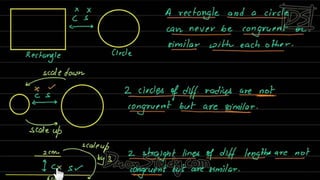 x x
C S
Rectangle
Circle
A rectangle and a circle
can never be congruent or
similar with each other.
scale down
x ✓
C S
scale up
2 circles of diff radius are not
congruent but are similar.
2cm
scale up
by 3
Cx S✓
2 straight lines of diff lengths are not
congruent but are similar.